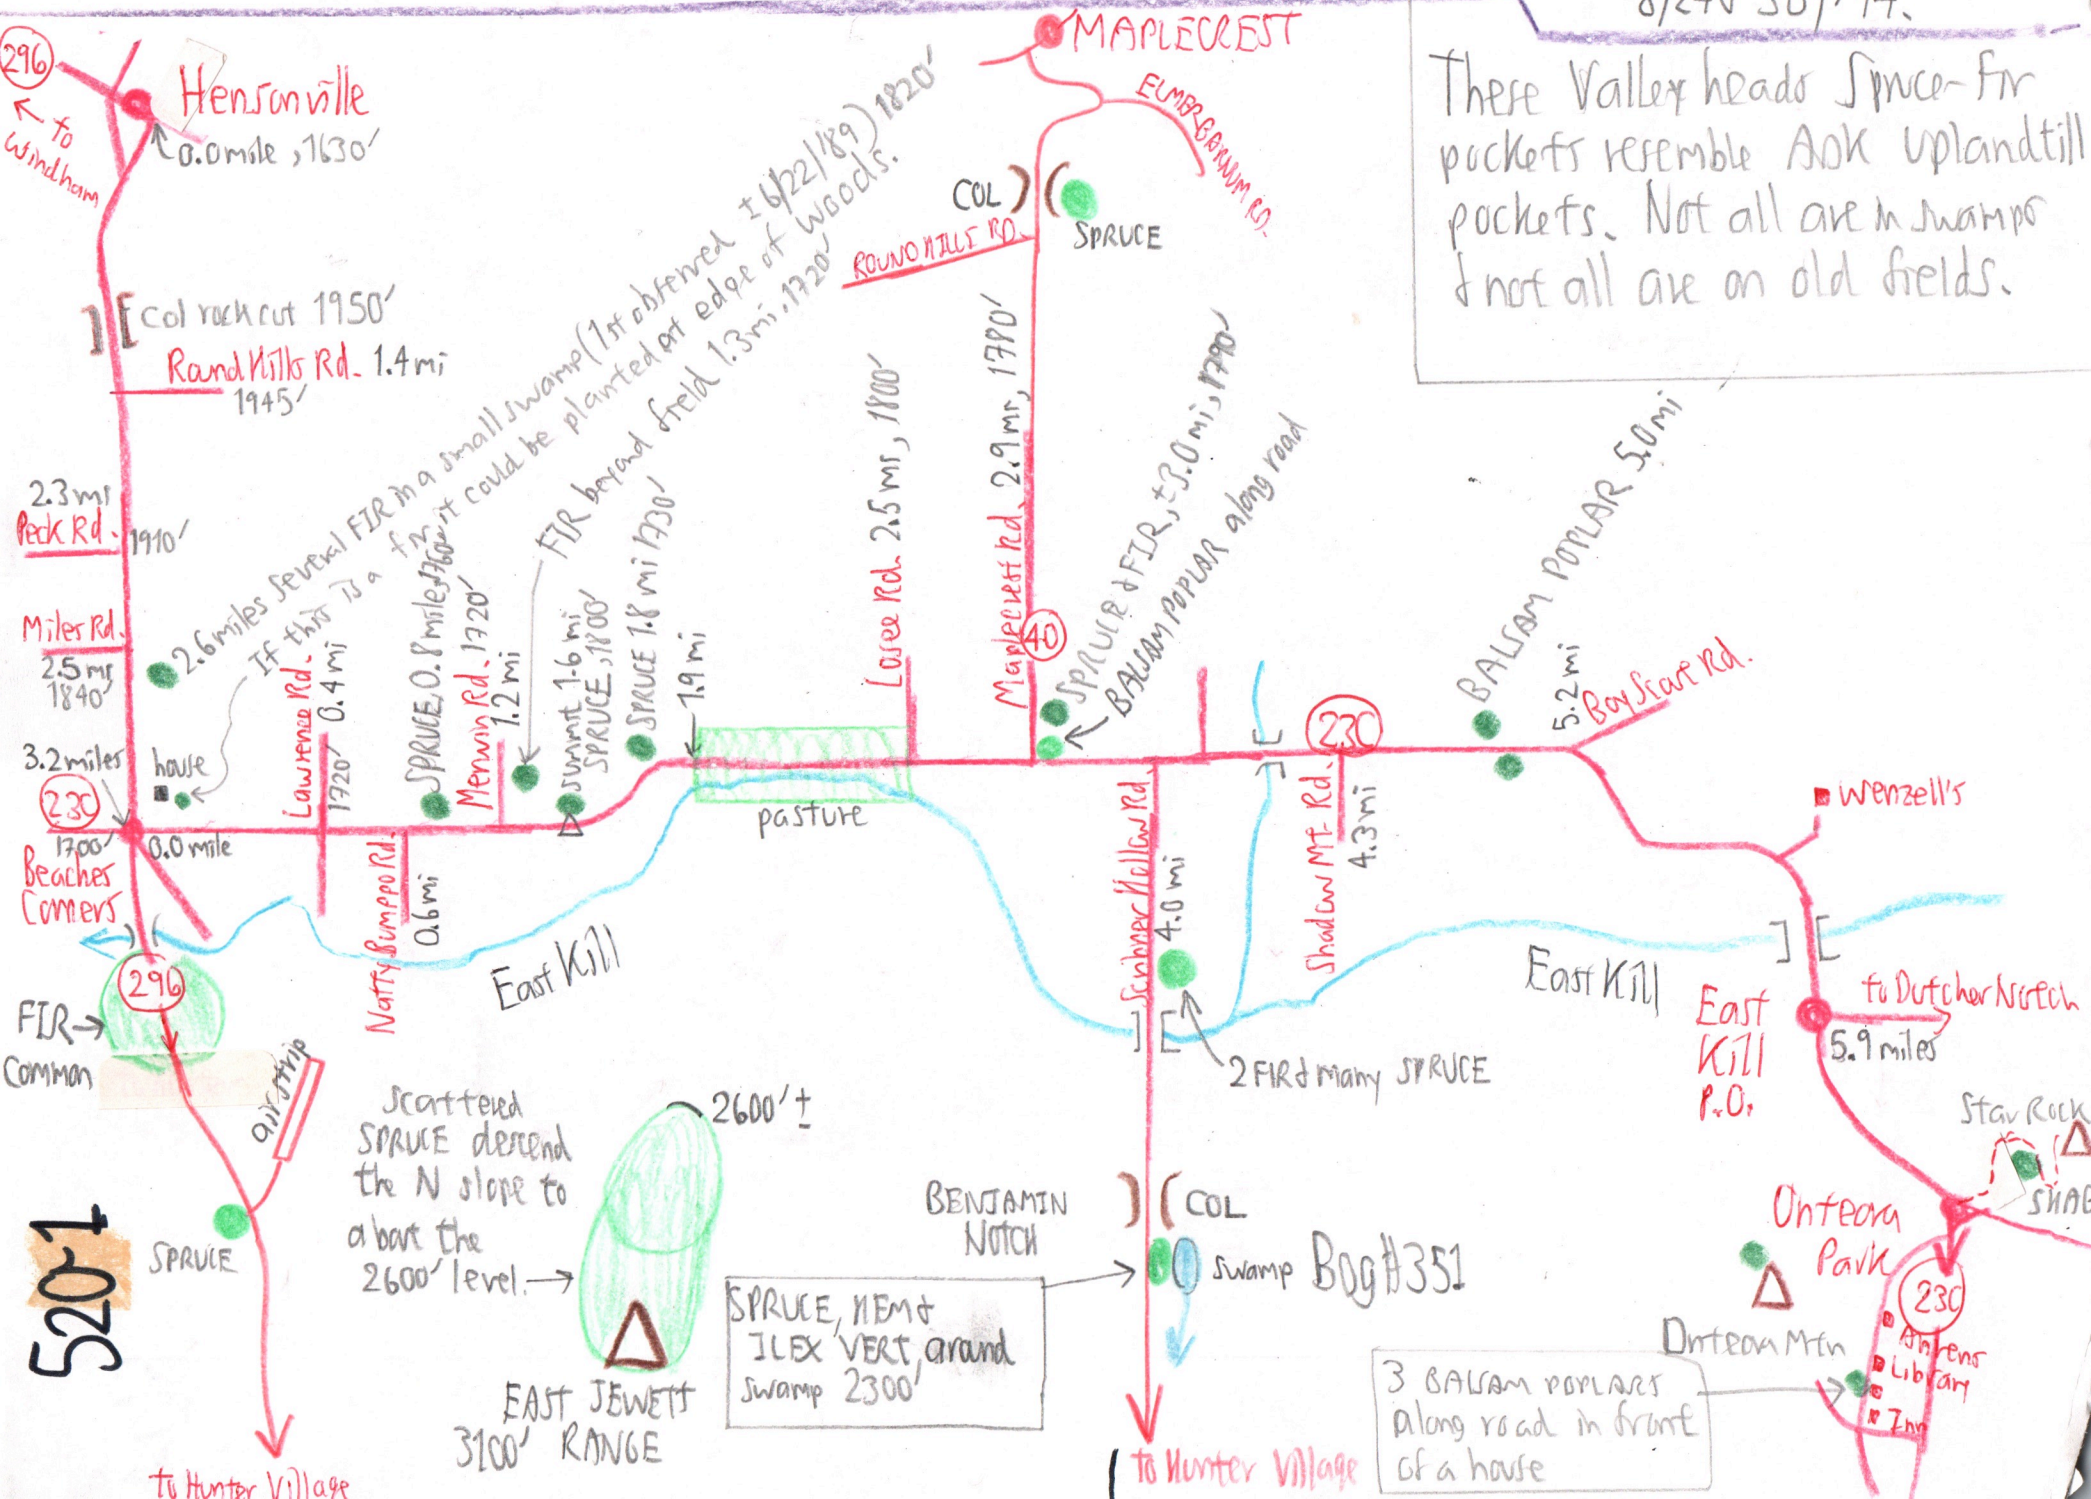 296
to
Windham
Hensonville
0.0 mile, 1630'
MAPLECREST
ELMER BARNUM RD.
COL
SPRUCE
ROUND HILLS RD.
These Valley heads Spruce-Fir
pockets resemble ADK upland till
pockets. Not all are in swamps
& not all are on old fields.
Col rock cut 1950'
Round Hills Rd. 1.4 mi
1945'
2.3 mi
Peck Rd.
1910'
Miles Rd.
2.5 mi
1840'
2.6 miles several FIR in a small swamp (1st observed ± 6/22/'89) 1820'
If this is a fir it could be planted at edge of woods.
house
3.2 miles
23C
1700'
0.0 mile
Beaches
Corners
Lawrence Rd.
0.4 mi
1720'
Natty Bumppo Rd.
0.6 mi
SPRUCE, 0.8 miles, 1760'
Merwin Rd. 1720'
1.2 mi
FIR beyond field 1.3 mi, 1720'
summit 1.6 mi
SPRUCE, 1800'
SPRUCE 1.8 mi 1730'
1.9 mi
pasture
Losee Rd. 2.5 mi, 1800'
Maplecrest Rd. 2.9 mi, 1780'
40
SPRUCE & FIR, ± 3.0 mi, 1790'
BALSAM POPLAR along road
Scribner Hollow Rd.
4.0 mi
23C
Shadow Mt. Rd.
4.3 mi
BALSAM POPLAR 5.0 mi
5.2 mi
Boy Scout Rd.
Wenzell's
East Kill
East Kill
296
FIR
common
airstrip
SPRUCE
to Hunter Village
520-1
scattered
SPRUCE descend
the N slope to
about the
2600' level.
2600' ±
EAST JEWETT
3100' RANGE
2 FIR & many SPRUCE
BENJAMIN
NOTCH
COL
swamp Bog #351
SPRUCE, HEM &
ILEX VERT, around
swamp 2300'
to Hunter Village
East
Kill
P.O.
to Dutcher Notch
5.9 miles
Star Rock
Onteora
Park
23C
Onteora Mtn
Ahrens
Library
Inn
3 BALSAM POPLARS
along road in front
of a house